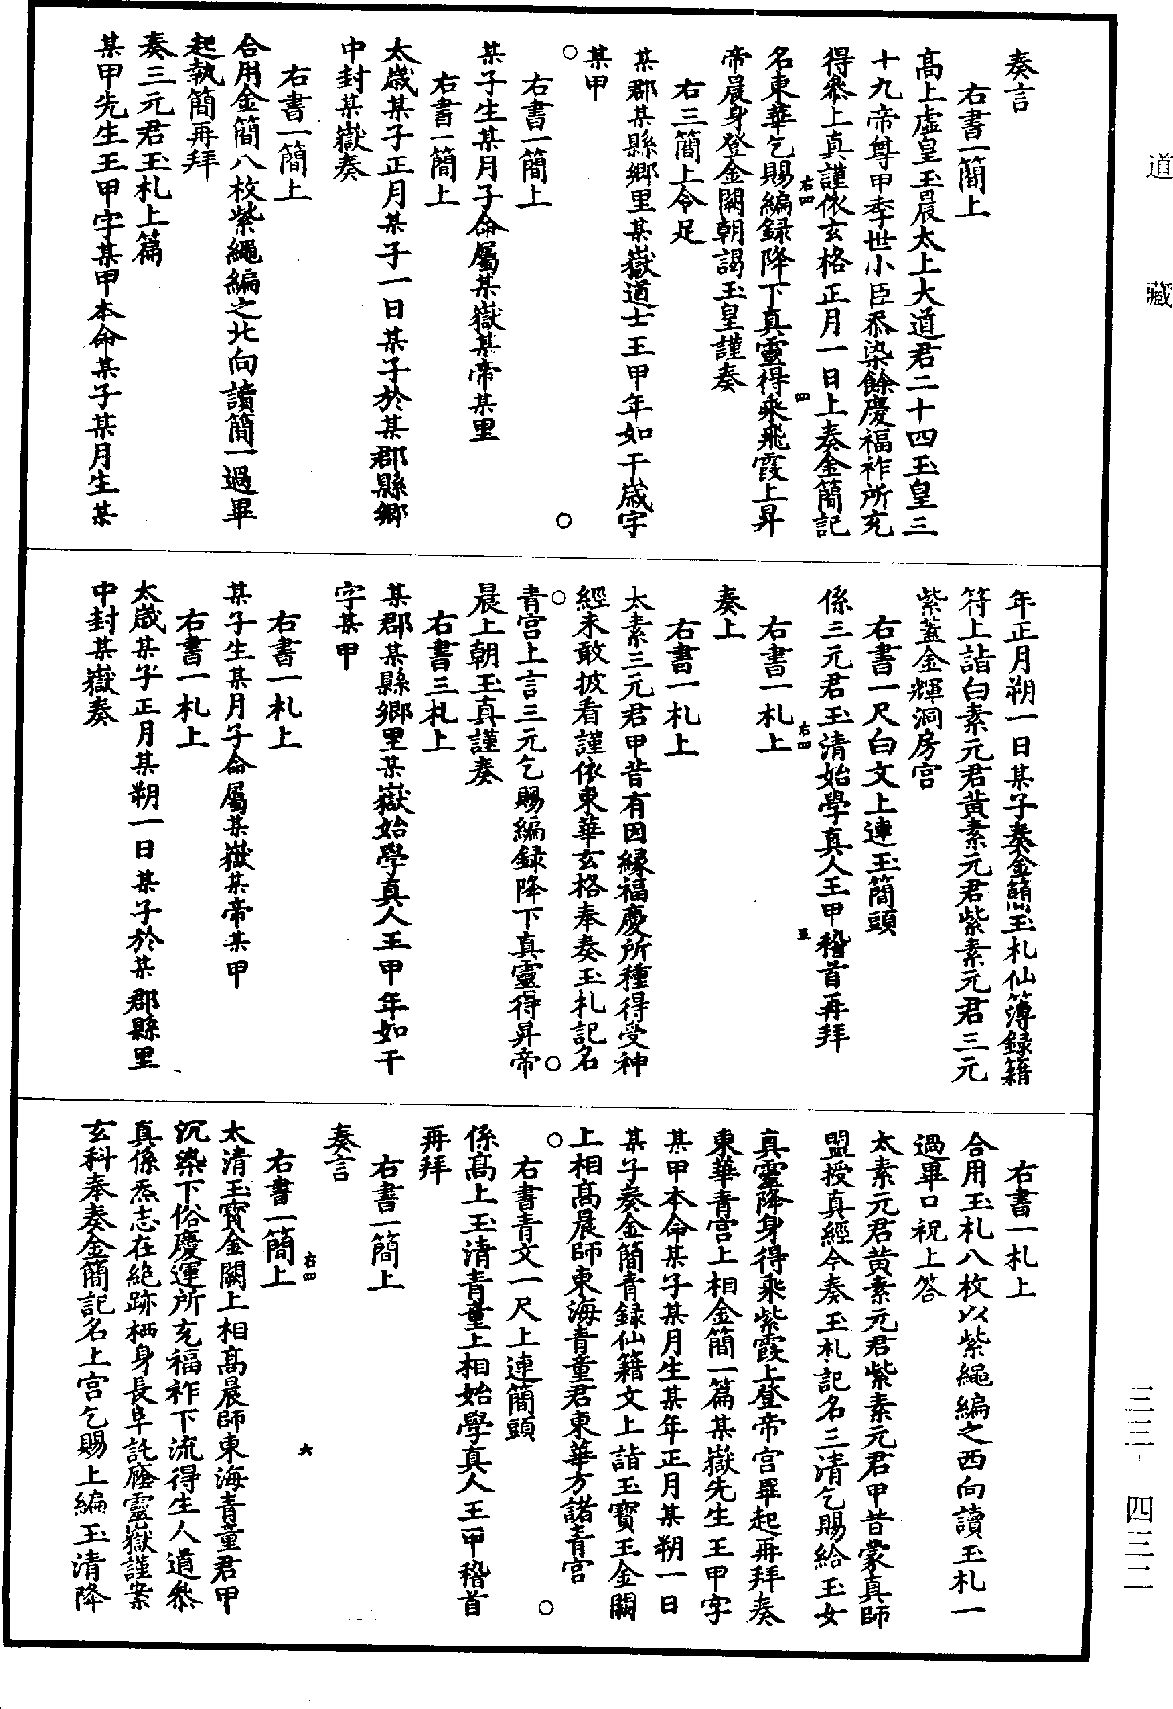 道藏
奏言
右書一簡上
高上虛皇玉晨太上大道君二十四玉皇三
十九帝尊甲季世小臣忝染餘慶福祚所充
得叅上真謹依玄格正月一日上奏金簡記
右四
四
名東華乞賜編録降下真靈得乘飛霞上昇
帝晨身登金闕朝謁玉皇謹奏
右三簡上令足
某郡某縣鄉里某嶽道士王甲年如干歲字
某甲
右書一簡上
某子生某月子命屬某嶽某帝某里
右書一簡上
太歲某子正月某子一日某子於某郡縣鄉
中封某嶽奏
右書一簡上
合用金簡八枚紫繩編之北向讀簡一過畢
起執簡再拜
奏三元君玉札上篇
某甲先生王甲字某甲本命某子某月生某
年正月朔一日某子奏金蕳玉札仙簿録籍
符上詣白素元君黃素元君紫素元君三元
紫蓋金輝洞房宮
右書一尺白文上連玉簡頭
係三元君玉清始學真人王甲稽首再拜
右四
五
右書一札上
奏上
右書一札上
太素三元君甲昔有因緣福慶所種得受神
經未敢披看謹依東華玄格奉奏玉札記名
青宮上言三元乞賜編録降下真靈得昇帝
晨上朝玉真謹奏
右書三札上
某郡某縣鄉里某嶽始學真人王甲年如干
字某甲
右書一札上
某子生某月子命屬某嶽某帝某甲
右書一札上
太歲某子正月某朔一日某子於某郡縣里
中封某嶽奏
右書一札上
合用玉札八枚以紫繩編之西向讀玉札一
過畢口祝上答
太素元君黃素元君紫素元君甲昔蒙真師
盟授真經今奏玉札記名三清乞賜給玉女
真靈降身得乘紫霞上登帝宮畢起再拜奏
東華青宮上相金簡一篇某嶽先生王甲字
某甲本命某子某月生某年正月某朔一日
某子奏金簡青録仙籍文上詣玉寶王金闕
上相高晨師東海青童君東華方諸青宮
右書青文一尺上連簡頭
係高上玉清青童上相始學真人王甲稽首
再拜
右書一簡上
奏言
右書一簡上
右四
六
太清玉寶金闕上相高晨師東海青童君甲
沉染下俗慶運所充福祚下流得生人道叅
真係炁志在絶跡栖身長阜託廕靈嶽謹案
玄科奉奏金簡記名上宮乞賜上編玉清降
三三·四三二